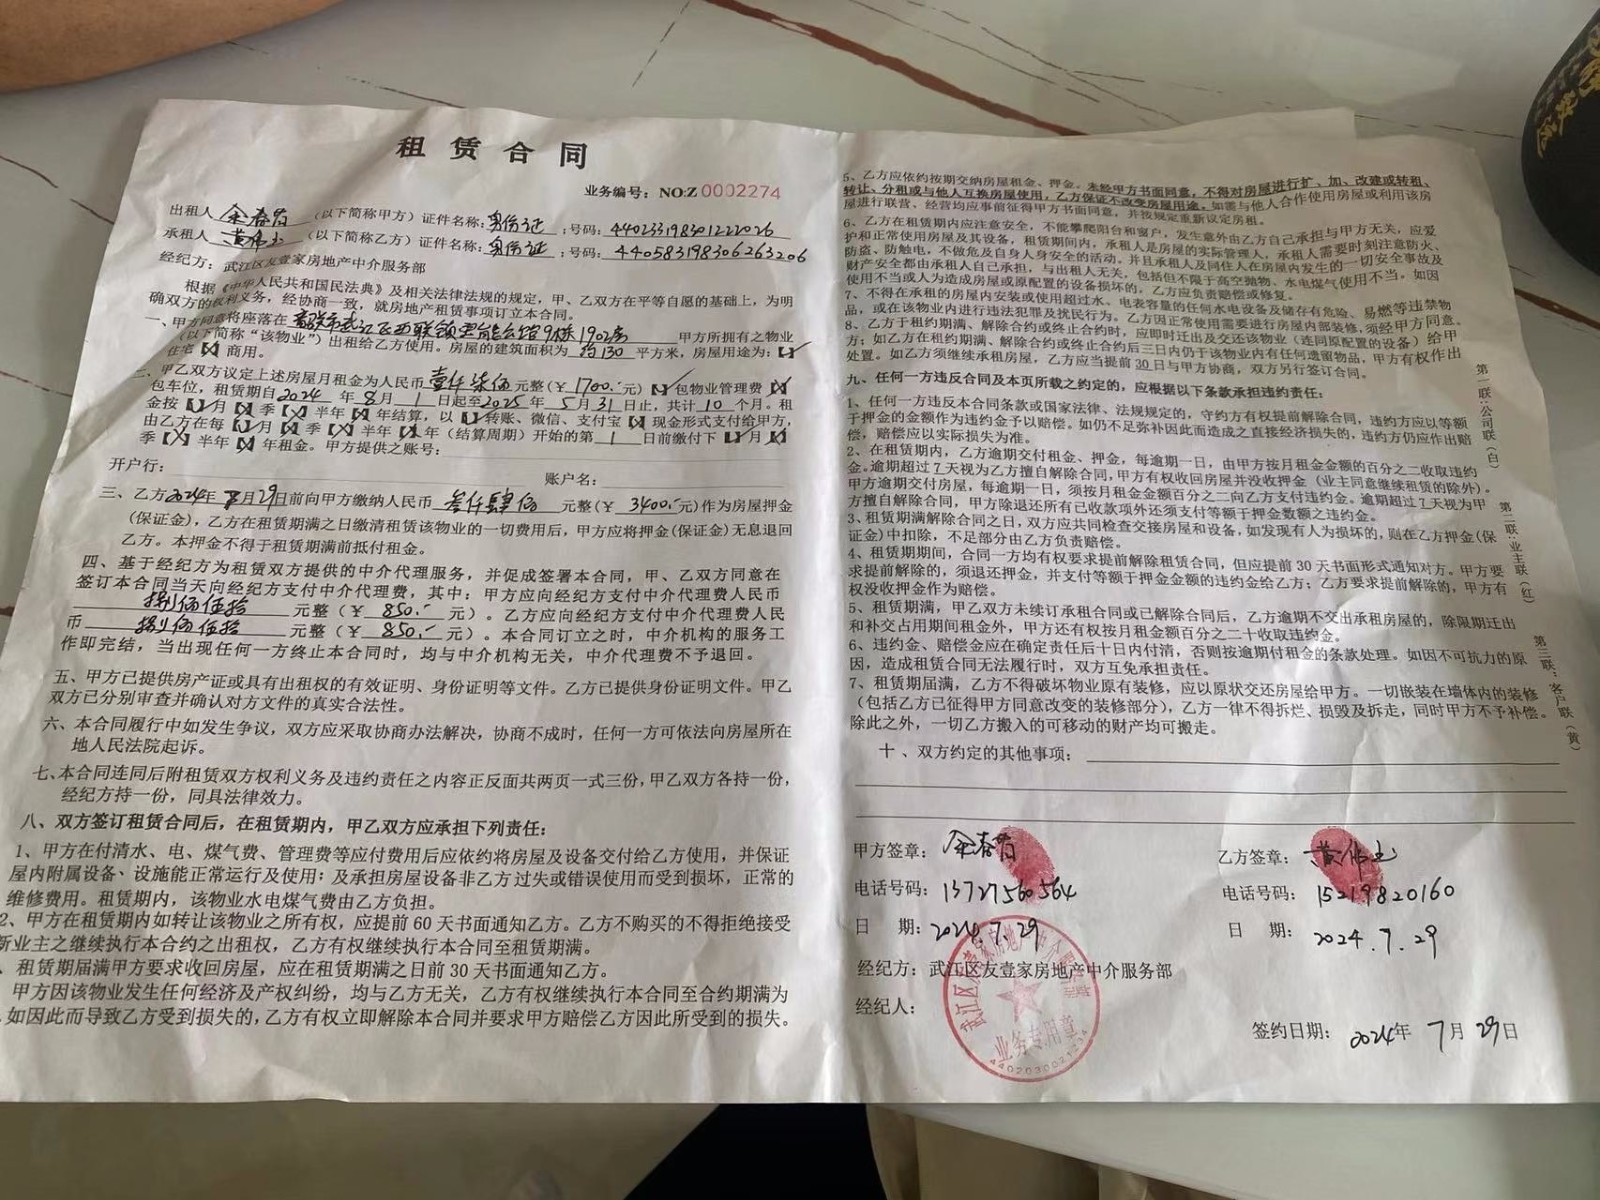 租赁合同
业务编号：NO:Z 0002274
出租人 （以下简称甲方）证件名称：身份证；号码：440233198301222026
承租人 黄伟 （以下简称乙方）证件名称：身份证；号码：440583198306263206
经纪方：武江区友壹家房地产中介服务部
根据《中华人民共和国民法典》及相关法律法规的规定，甲、乙双方在平等自愿的基础上，为明
确双方的权利义务，经协商一致，就房地产租赁事项订立本合同。
一、甲方同意将座落在 武江区西联镇 9栋1902房 甲方所拥有之物业
（以下简称“该物业”）出租给乙方使用。房屋的建筑面积为 约130 平方米，房屋用途为：【✓】
住宅【×】商用。
二、甲乙双方议定上述房屋月租金为人民币 壹仟柒佰 元整（￥1700.-元）【✓】包物业管理费【×】
包车位，租赁期自2024年8月1日起至2025年5月31日止，共计10个月。租
金按【✓】月【×】季【×】半年【×】年结算，以【✓】转账、微信、支付宝【×】现金形式支付给甲方，
由乙方在每【✓】月【×】季【×】半年【×】年（结算周期）开始的第 1 日前缴付下【✓】月【×】
季【×】半年【×】年租金。甲方提供之账号：
开户行： 账户名：
三、乙方2024年7月29日前向甲方缴纳人民币 叁仟肆佰 元整（￥3400.-元）作为房屋押金
（保证金），乙方在租赁期满之日缴清租赁该物业的一切费用后，甲方应将押金(保证金)无息退回
乙方。本押金不得于租赁期满前抵付租金。
四、基于经纪方为租赁双方提供的中介代理服务，并促成签署本合同，甲、乙双方同意在
签订本合同当天向经纪方支付中介代理费，其中：甲方应向经纪方支付中介代理费人民币
捌佰伍拾 元整（￥850.-元）。乙方应向经纪方支付中介代理费人民
币 捌佰伍拾 元整（￥850.-元）。本合同订立之时，中介机构的服务工
作即完结，当出现任何一方终止本合同时，均与中介机构无关，中介代理费不予退回。
五、甲方已提供房产证或具有出租权的有效证明、身份证明等文件。乙方已提供身份证明文件。甲乙
双方已分别审查并确认对方文件的真实合法性。
六、本合同履行中如发生争议，双方应采取协商办法解决，协商不成时，任何一方可依法向房屋所在
地人民法院起诉。
七、本合同连同后附租赁双方权利义务及违约责任之内容正反面共两页一式三份，甲乙双方各持一份，
经纪方持一份，同具法律效力。
八、双方签订租赁合同后，在租赁期内，甲乙双方应承担下列责任：
1、甲方在付清水、电、煤气费、管理费等应付费用后应依约将房屋及设备交付给乙方使用，并保证
屋内附属设备、设施能正常运行及使用；及承担房屋设备非乙方过失或错误使用而受到损坏，正常的
维修费用。租赁期内，该物业水电煤气费由乙方负担。
2、甲方在租赁期内如转让该物业之所有权，应提前60天书面通知乙方。乙方不购买的不得拒绝接受
新业主之继续执行本合约之出租权，乙方有权继续执行本合同至租赁期满。
、租赁期届满甲方要求收回房屋，应在租赁期满之日前30天书面通知乙方。
甲方因该物业发生任何经济及产权纠纷，均与乙方无关，乙方有权继续执行本合同至合约期满为
。如因此而导致乙方受到损失的，乙方有权立即解除本合同并要求甲方赔偿乙方因此所受到的损失。
5、乙方应依约按期交纳房屋租金、押金。未经甲方书面同意，不得对房屋进行扩、加、改建或转租、
转让、分租或与他人互换房屋使用，乙方保证不改变房屋用途，如需与他人合作使用房屋或利用该房
屋进行联营、经营均应事前征得甲方书面同意，并按规定重新议定房租。
6、乙方在租赁期内应注意安全，不能攀爬阳台和窗户，发生意外由乙方自己承担与甲方无关，应爱
护和正常使用房屋及其设备，租赁期间内，承租人是房屋的实际管理人，承租人需要时刻注意防火、
防盗、防触电，不做危及自身人身安全的活动。并且承租人及同住人在房屋内发生的一切安全事故及
财产安全都由承租人自己承担，与出租人无关，包括但不限于高空抛物、水电煤气使用不当，如因
使用不当或人为造成房屋或原配置的设备损坏的，乙方应负责赔偿或修复。
7、不得在承租的房屋内安装或使用超过水、电表容量的任何水电设备及储存有危险、易燃等违禁物
品，或在该物业内进行违法犯罪及扰民行为。乙方因正常使用需要进行房屋内部装修，须经甲方同意。
8、乙方于租约期满、解除合约或终止合约时，应即时迁出及交还该物业（连同原配置的设备）给甲
方；如乙方在租约期满、解除合约或终止合约后三日内仍于该物业内有任何遗留物品，甲方有权作出
处置。如乙方须继续承租房屋，乙方应当提前30日与甲方协商，双方另行签订合同。
九、任何一方违反合同及本页所载之约定的，应根据以下条款承担违约责任：
1、任何一方违反本合同条款或国家法律、法规规定的，守约方有权提前解除合同，违约方应以等额
于押金的金额作为违约金予以赔偿。如仍不足弥补因此而造成之直接经济损失的，违约方仍应作出赔
偿，赔偿应以实际损失为准。
2、在租赁期内，乙方逾期交付租金、押金，每逾期一日，由甲方按月租金金额的百分之二收取违约
金。逾期超过7天视为乙方擅自解除合同，甲方有权收回房屋并没收押金（业主同意继续租赁的除外）。
甲方逾期交付房屋，每逾期一日，须按月租金金额百分之二向乙方支付违约金。逾期超过7天视为甲
方擅自解除合同，甲方除退还所有已收款项外还须支付等额于押金数额之违约金。
3、租赁期满解除合同之日，双方应共同检查交接房屋和设备，如发现有人为损坏的，则在乙方押金(保
证金)中扣除，不足部分由乙方负责赔偿。
4、租赁期期间，合同一方均有权要求提前解除租赁合同，但应提前30天书面形式通知对方。甲方要
求提前解除的，须退还押金，并支付等额于押金金额的违约金给乙方；乙方要求提前解除的，甲方有
权没收押金作为赔偿。
5、租赁期满，甲乙双方未续订承租合同或已解除合同后，乙方逾期不交出承租房屋的，除限期迁出
和补交占用期间租金外，甲方还有权按月租金额百分之二十收取违约金。
6、违约金、赔偿金应在确定责任后十日内付清，否则按逾期付租金的条款处理。如因不可抗力的原
因，造成租赁合同无法履行时，双方互免承担责任。
7、租赁期届满，乙方不得破坏物业原有装修，应以原状交还房屋给甲方。一切嵌装在墙体内的装修
（包括乙方已征得甲方同意改变的装修部分），乙方一律不得拆烂、损毁及拆走，同时甲方不予补偿。
除此之外，一切乙方搬入的可移动的财产均可搬走。
十、双方约定的其他事项：
甲方签章： 乙方签章：黄伟
电话号码：13727560564 电话号码：15219820160
日 期：2024.7.29 日 期：2024.7.29
经纪方：武江区友壹家房地产中介服务部
经纪人：
签约日期：2024年7月29日
武江区友壹家房地产中介服务部
业务专用章
第一联：公司联（白）
第二联：业主联（红）
第三联：客户联（黄）